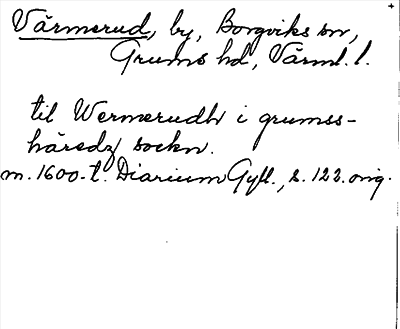 Värmerud, by, Borgviks sn,
Grums hd, Värml. l.
til Wermerudh i grumss-
häredz sockn.
m. 1600-t. Diarium Gyll., s. 122. orig.